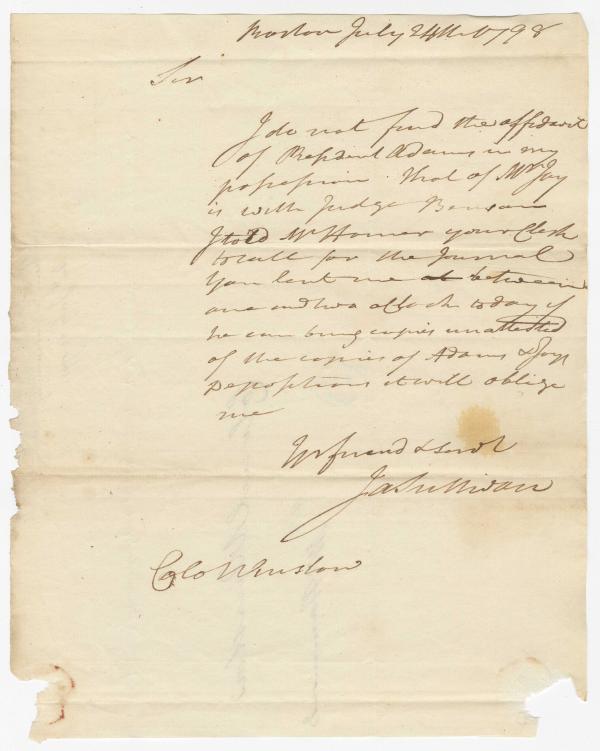 Boston July 24th 1798
Sir
I do not find the affidavit
of President Adams in my
possession. that of Mr Jay
is with Judge Benson
I told Mr Homer your Clerk
to call for the Journal
You lent me at between
one and two o Clock to day if
he can bring copies unattested
of the copies of Adams & Jays
Depositions it will oblige
me
Yr friend & Servt
Ja Sullivan
Colo Winslow